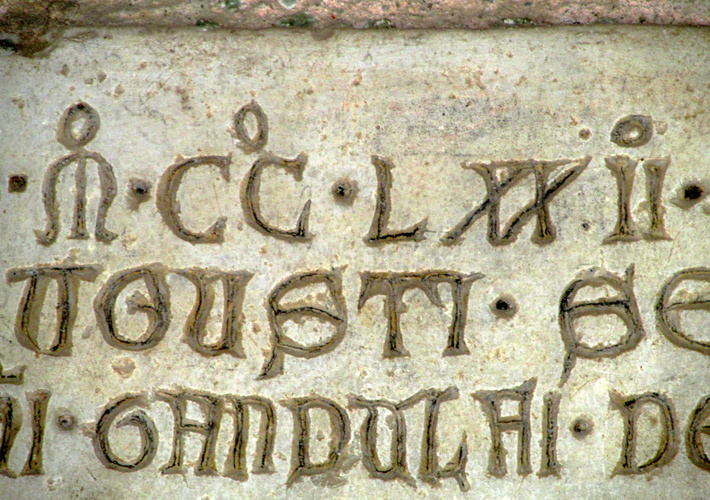 · M° · CC° · LXXII° ·
AGUSTI · SE
GANDULAI · DE